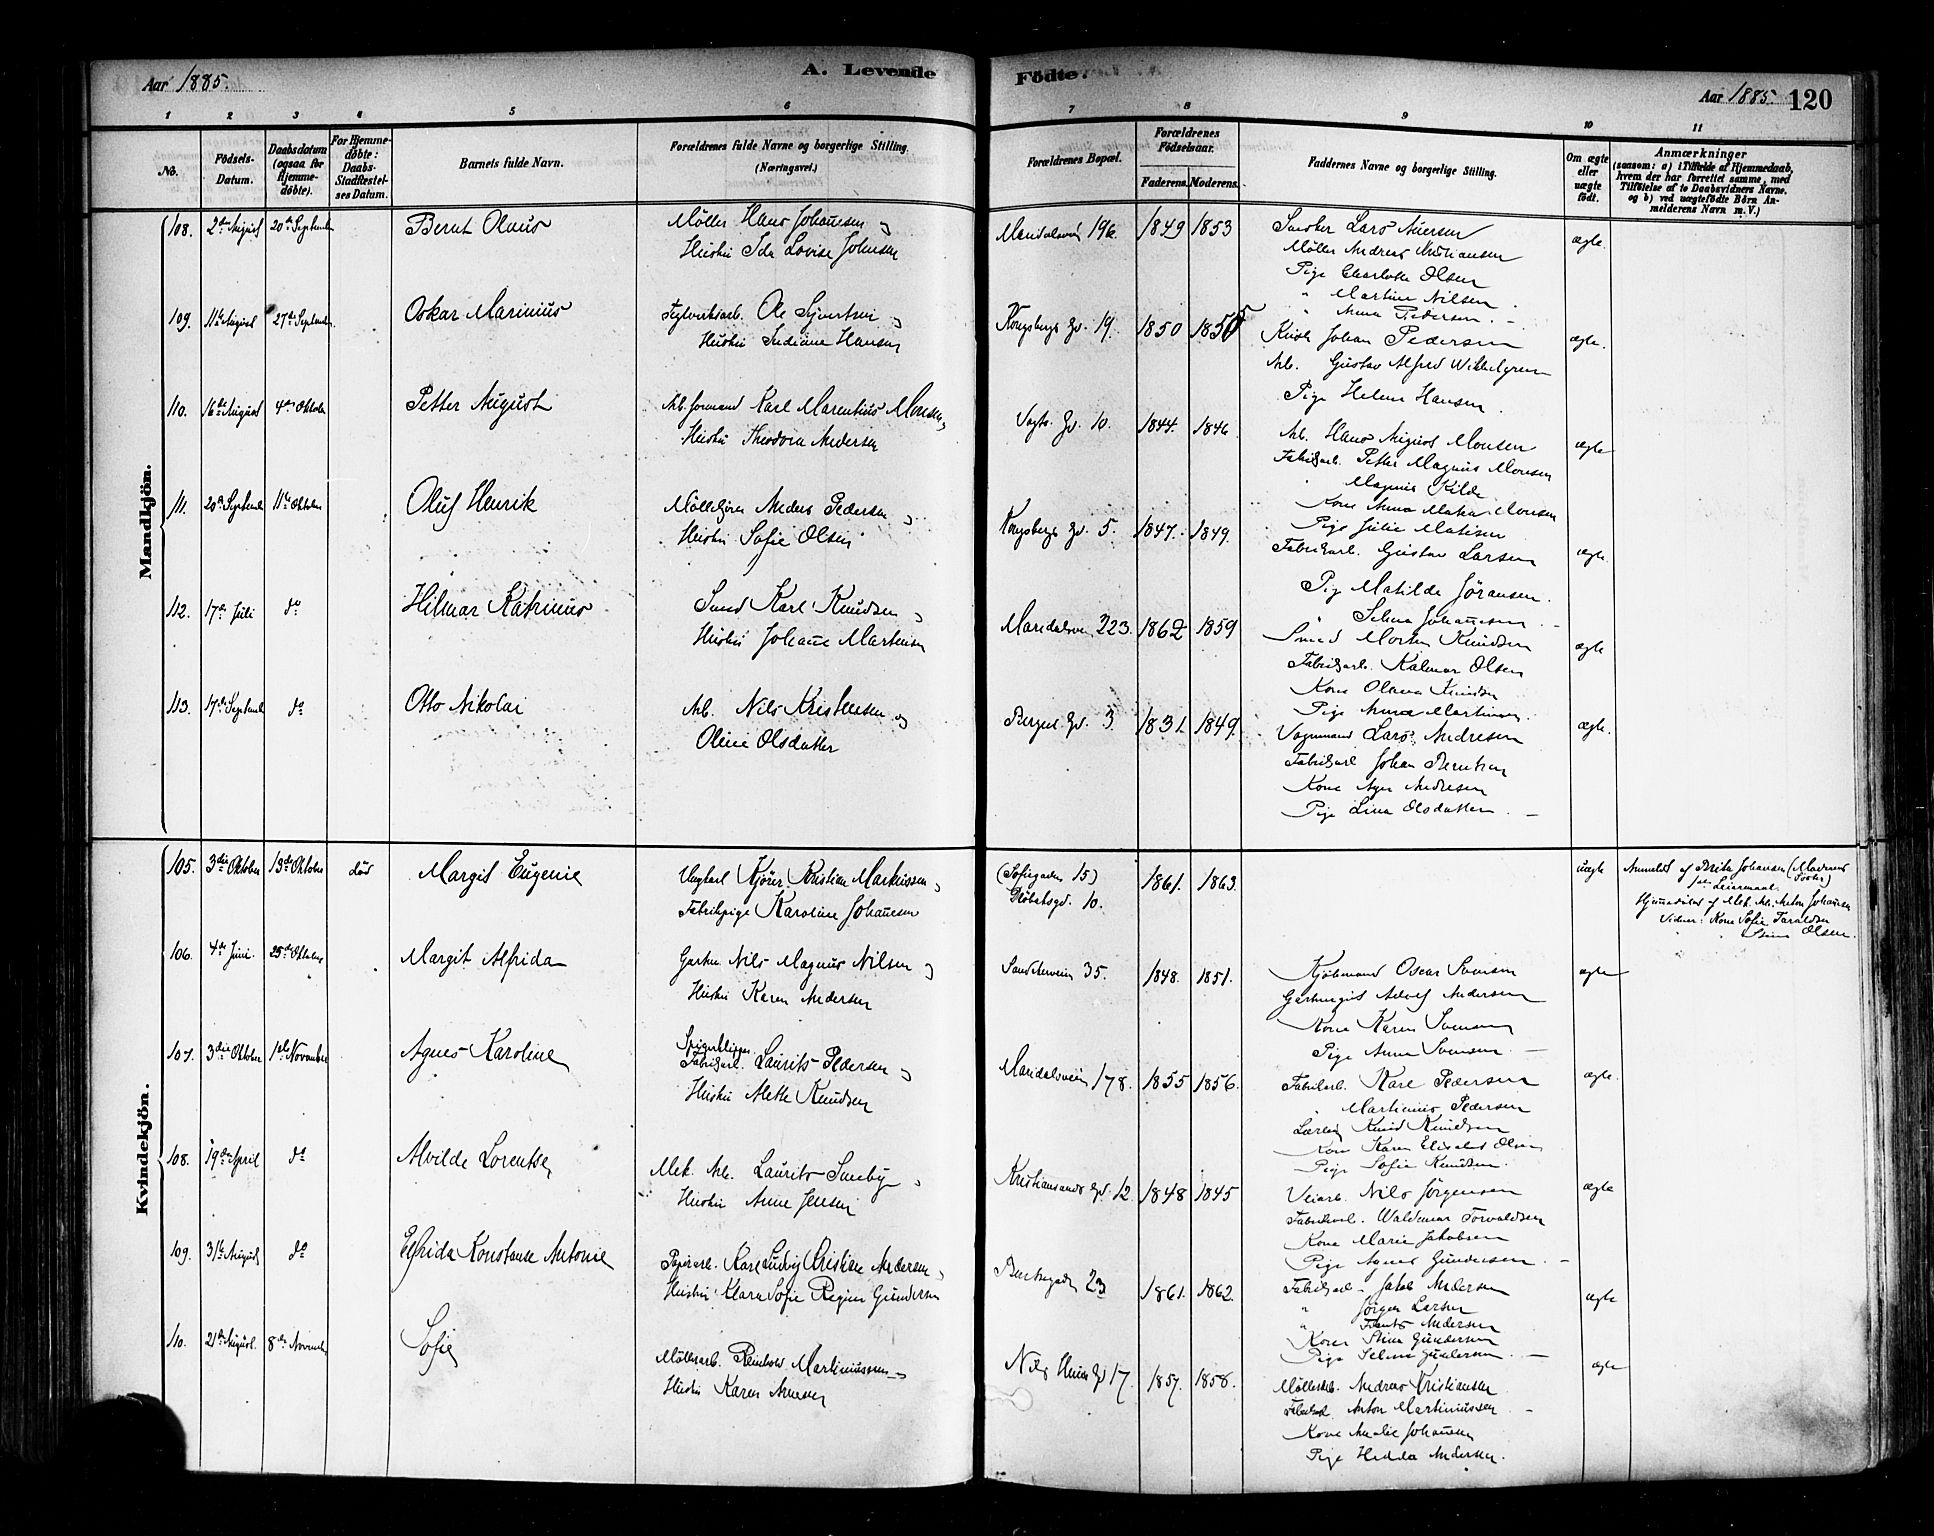 Aar 1885.
A. Levende Födte.
Aar 1885. 120
1 2 3 4 5 6 7 8 9 10 11
No.
Födsels-Datum.
Daabsdatum (ogsaa for Hjemmedöbte).
For Hjemmedöbte: Daabs-Stadfæstelses Datum.
Barnets fulde Navn.
Forældrenes fulde Navne og borgerlige Stilling. (Næringsvei.)
Forældrenes Bopæl.
Forældrenes Födselsaar.
Faderens. Moderens.
Faddernes Navne og borgerlige Stilling.
Om ægte eller uægte födt.
Anmærkninger
(saasom: a) i Tilfælde af Hjemmedaab, hvem der har forrettet samme, med Tilföielse af to Daabsvidners Navne, og b) ved uægtefödte Börn Anmelderens Navn m. V.)
Mandkjön.
108. 2den August 20de September Bernt Olaus Møller Hans Johansen og Maridalsveien 196. 1849 1853 ægte
Hustru Ida Lovise Johnsen
Snedker Lars Iversen
Møller Andreas Kristiansen
Pige Charlotte Olsen
" Martine Nilsen
" Anna Pedersen.
109. 11te August 27de September Oskar Marinius Teglverksarb. Ole Syvertsen og Kongsbergs Gd. 19. 1850 1855 ægte.
Hustru Indiane Hansen
Kusk Johan Pedersen
Arb. Gustav Alfred
Pige Helene Hansen.
110. 16de August 4de Oktober Petter August Arb. formand Karl Marentius Monsen og Vogts Gd. 10. 1844. 1846 ægte
Hustru Theodora Andersen
Arb. Hans August Monsen
Fabrikarb. Petter Magnus Monsen
" Magnus Kilde
Kone Anna Monsen
Pige Julie Matisen
111. 20de September 11te Oktober Oluf Henrik Møllekjører Anders Pedersen og Kongsbergs Gd. 5. 1847. 1849. ægte
Hustru Sofie Olsen
Fabrikarb. Gustav Larsen
Pige Matilde Jøransen.
" Selma Johansen.
112. 17de Juli do Hilmar Katrinus Smed Karl Knudsen og Maridalsveien 223. 1862 1859 ægte
Hustru Johanne Martinsen
Smed Morten Knudsen
Fabrikarb. Kalmar Olsen
Kone Olava Knudsen
Pige Anna Martinsen.
113. 17de September do Otto Nikolai Arb. Nils Kristensen og Bergens Gd. 3. 1831. 1849. ægte.
Oline Olsdatter
Vognmand Lars Andresen
Fabrikarb Johan Berntsen
Kone Andresen
Pige Lina Olsdatter.
Kvindekjön.
105. 3die Oktober 13de Oktober død Margit Eugenie Ungkarl Kjører Kristian Markussen og (Sofiegaden 15) 1861. 1863. uægte
Fabrikpige Karoline Johansen
10.
Anmeldt af Johansen (Moderens
1ste Leiermaal.
Hjemmedøbt af Mek. Arb. Anton Johansen
Vidner: Kone Sofie Taraldsen
" Olsen.
106. 4de Juni. 25de Oktober Margit Alfrida Gartner Nils Magnus Nilsen og Sandakerveien 35. 1848. 1851. ægte
Hustru Karen Andersen
Kjøbmand Oscar Svensen
Adolf Andersen
Kone Karen Svensen
Pige Anna Svensen.
107. 3die Oktober 1ste November Agnes Karoline Spigerklipper
Fabrikarb. Laurits Pedersen og Maridalsveien 178. 1855 1856. ægte.
Hustru Mette Knudsen
Fabrikarb. Karl Pedersen
" Martinius Pedersen
Lærling Knud Knudsen
Kone Karen Elisabet Olsen
Pige Sofie Knudsen.
108. 19de April do Alvilde Lorentse Mek. Arb. Laurits Sneby og Kristiansands Gd. 12 1848 1845 ægte
Hustru Anne Jensen
Veiarb. Nils Jørgensen
Fabrikarb. Waldemar Torvaldsen
Kone Marie Jakobsen
Pige Agnes Gundersen.
109. 31te August do Elfrida Konstanse Antonie Papirarb. Karl Ludvig Kristian Andersen og 23 1861. 1862. ægte
Hustru Klara Sofie Regine Gundersen
Fabrikarb. Jakob Andersen
" Jørgen Larsen
" Andersen
Kone Stina Gundersen
Pige Selma Gundersen.
110. 21de August. 8de November Sofie Møllearb. Reinholt Martinussen og Nils Huus Gd 17. 1857. 1858. ægte
Hustru Karen Arnesen
Møllearb. Andreas Kristiansen
Fabrikarb. Anton Martinussen
Kone Amalie Johansen
Pige Hedda Andersen.